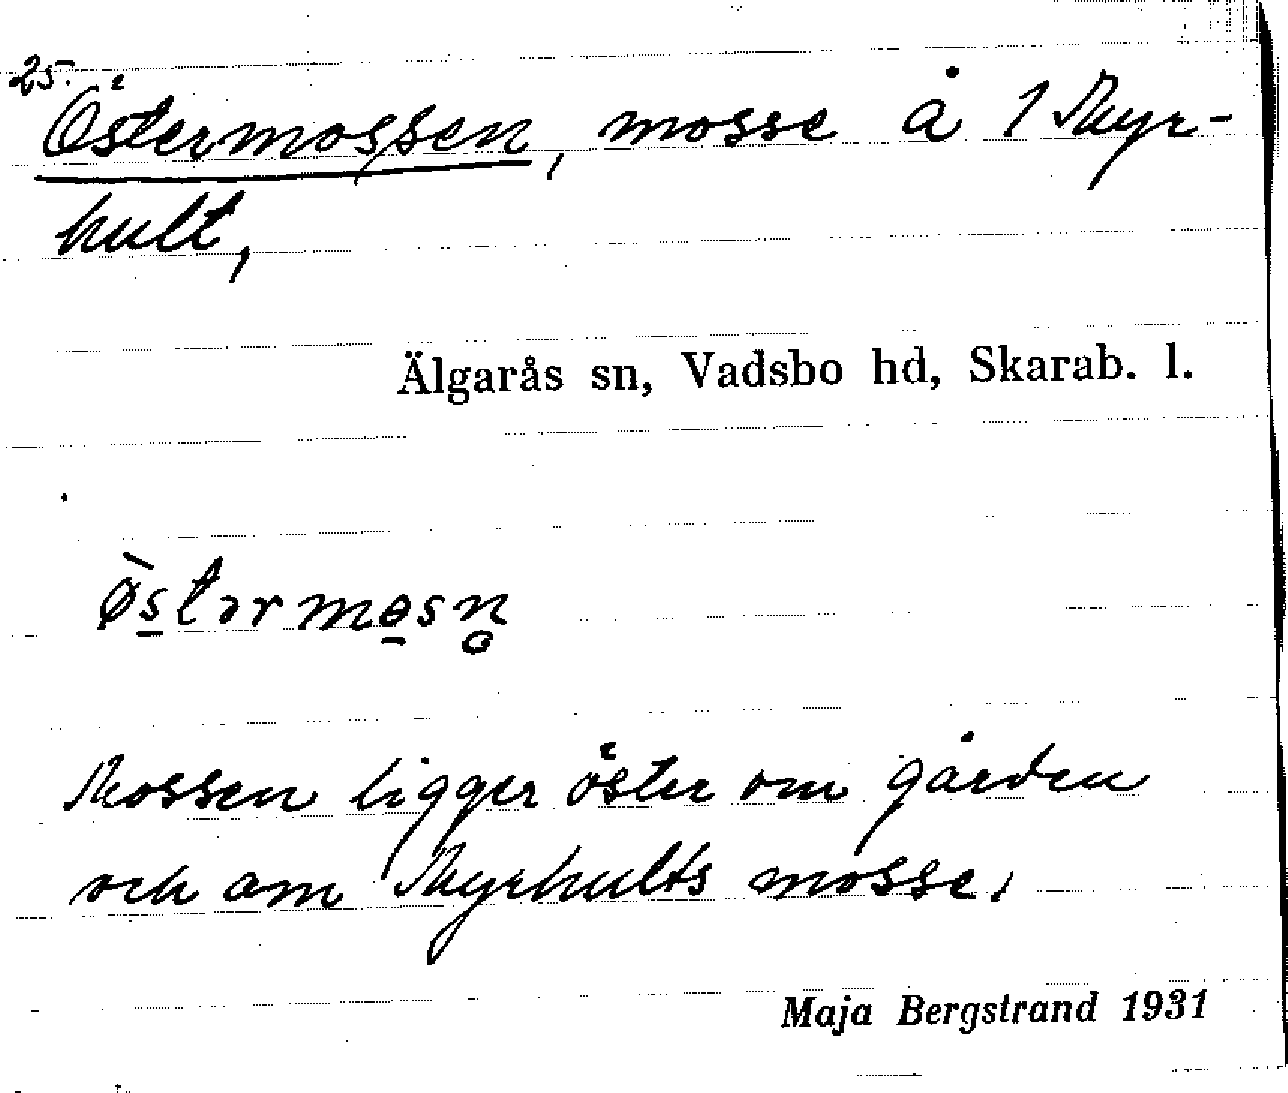 25.
Östermossen, mosse å 1 Myr-
hult,
Älgarås sn, Vadsbo hd, Skarab. l.
ø̀s̠tərmo̠sn̥
Mossen ligger öster om gården
och om Myrhults mosse.
Maja Bergstrand 1931